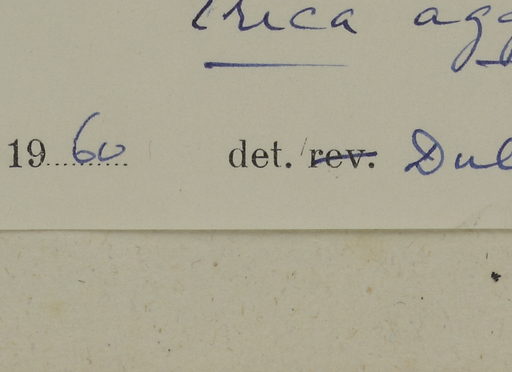 Erica agg
1960 det. rev. Dul